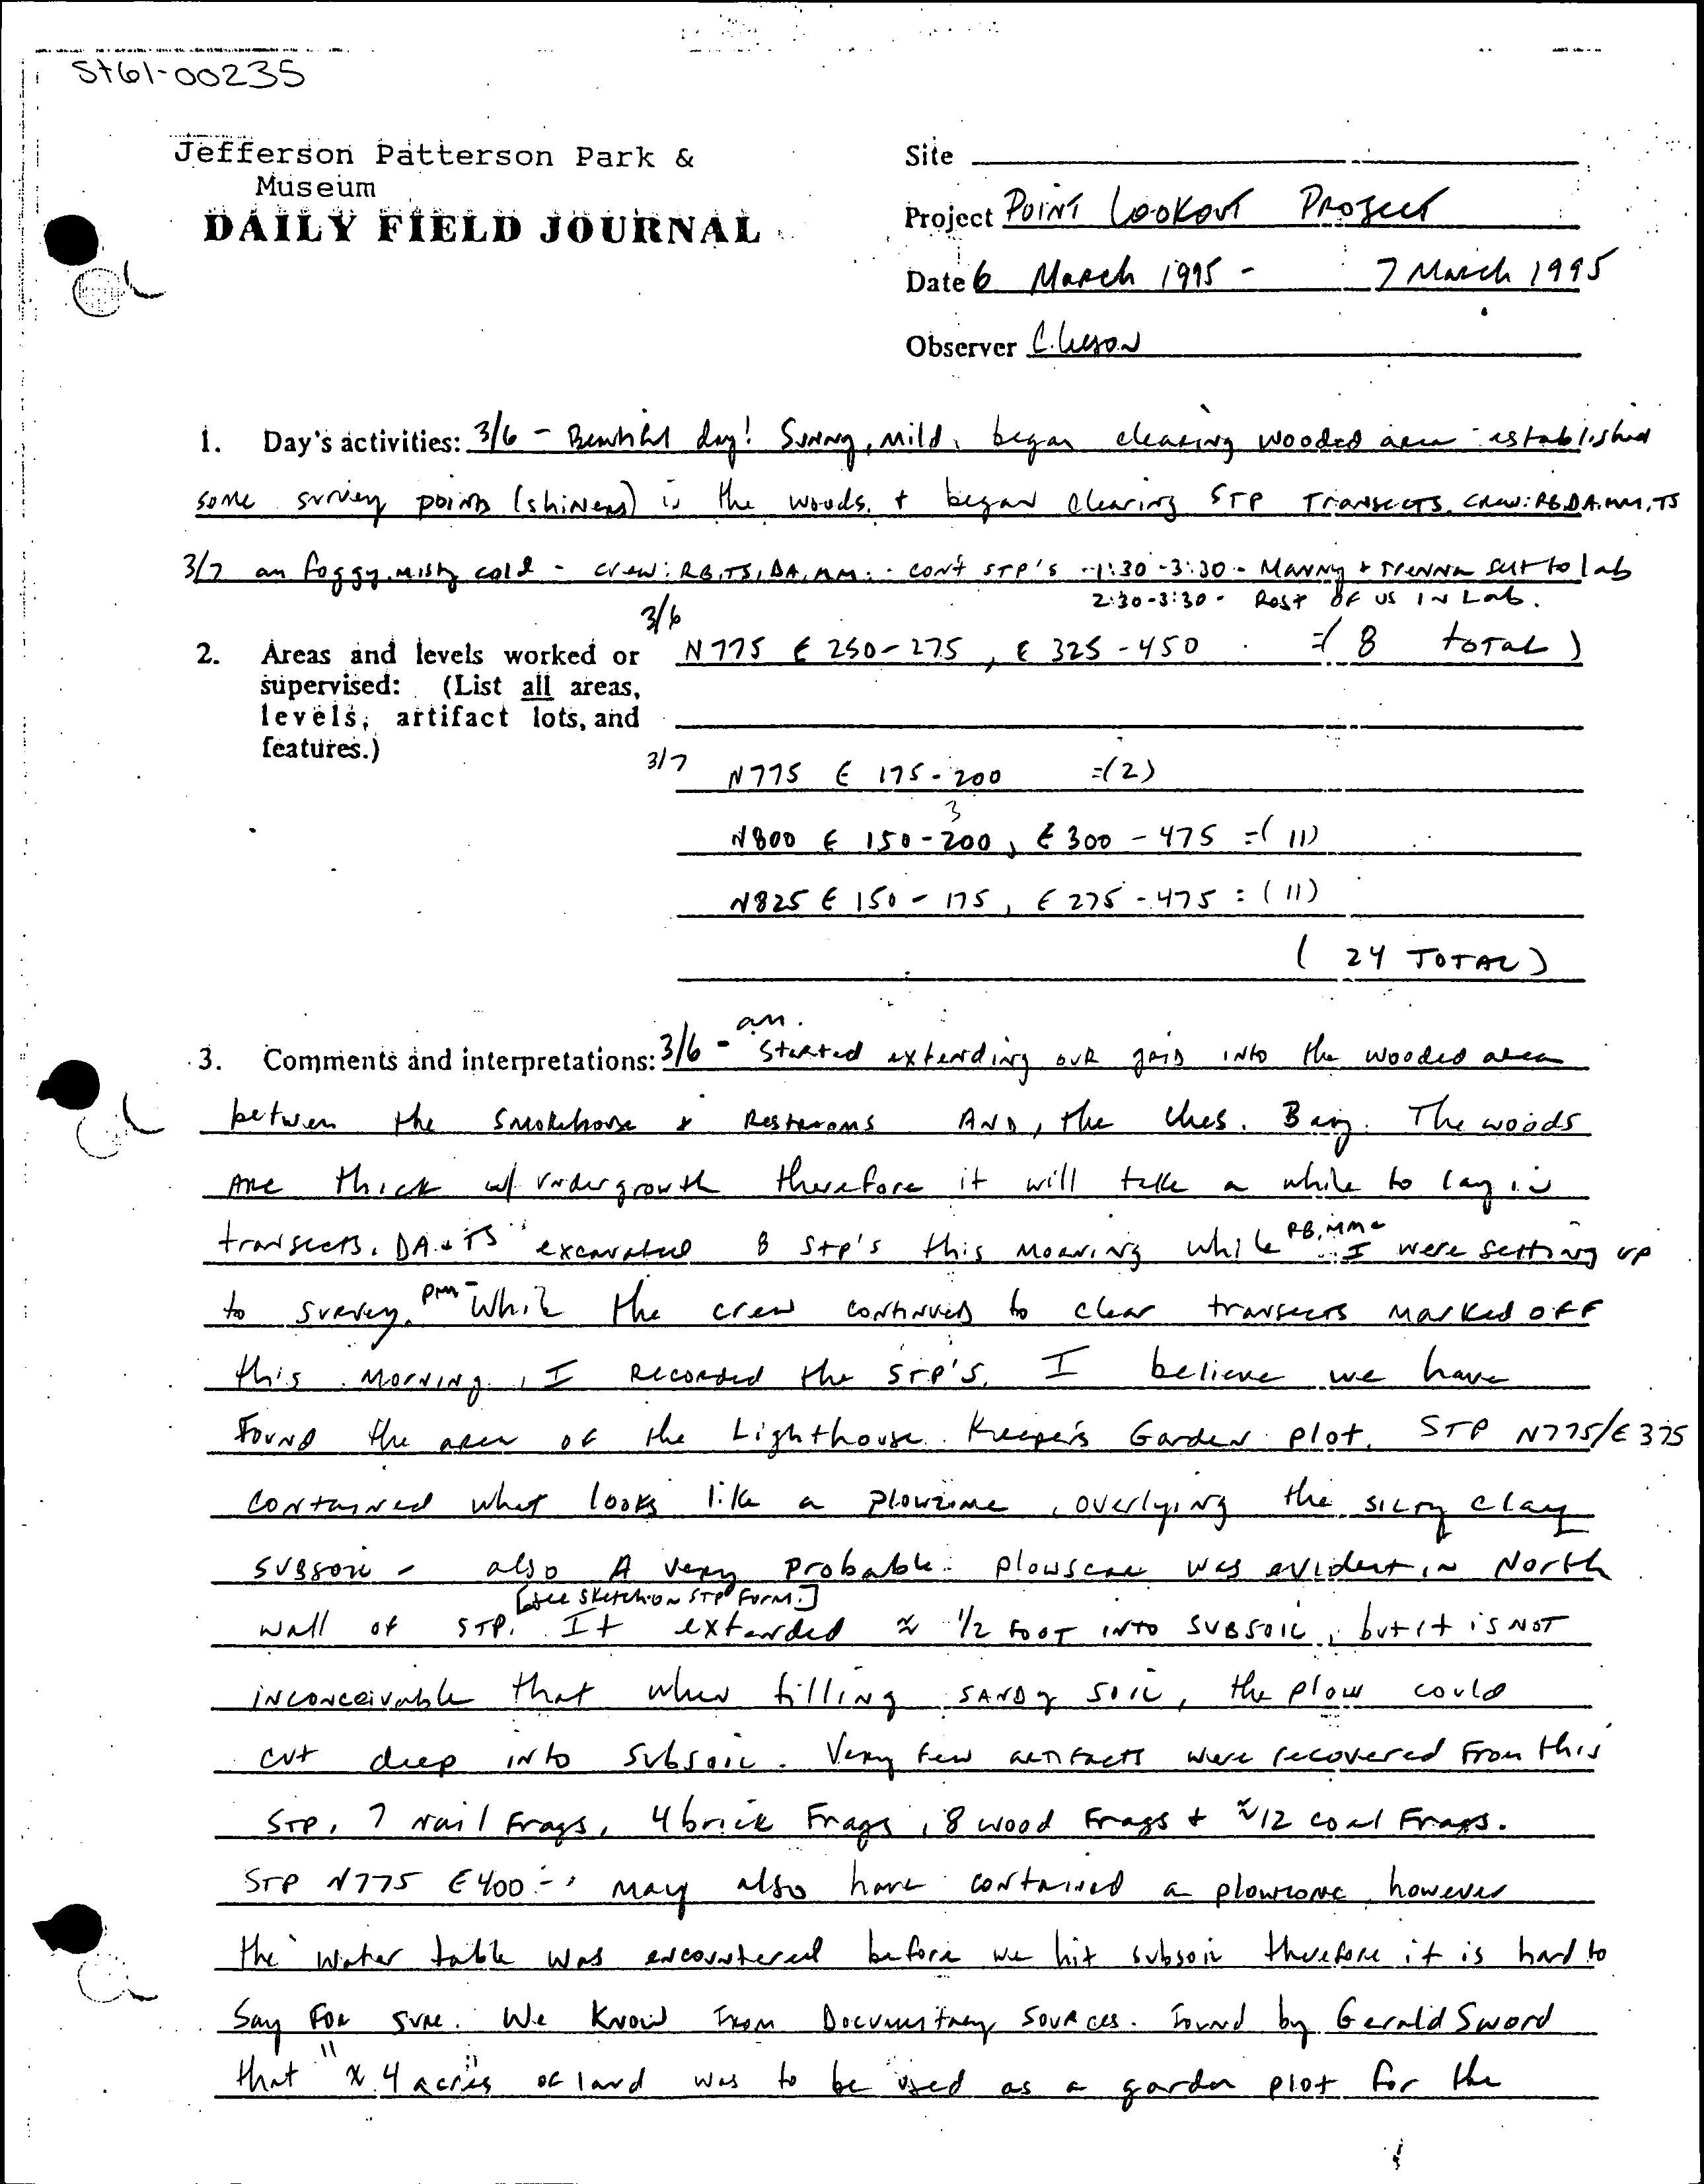 St61-00235
Jefferson Patterson Park &
Museum
DAILY FIELD JOURNAL
Site
Project Point Lookout Project
Date 6 March 1995 - 7 March 1995
Observer
1. Day's activities: 3/6 - Beautiful day! Sunny, mild. began clearing wooded area - established
some survey points (shiners) in the woods. + began clearing STP Transects. Crew: RB, DA, MM, TS
3/7 am foggy, misty cold - crew: RB, TS, DA, MM. - cont STP's - 1:30-3:30 - Manny + Trenna sent to lab
2:30-3:30 - Rest of us in Lab.
3/6
2. Areas and levels worked or N775 E 250-275, E 325-450 =( 8 total )
supervised: (List all areas,
levels, artifact lots, and
features.)
3/7 N775 E 175-200 =(2)
3
N800 E 150-200, E 300 - 475 =( 11)
N825 E 150 - 175, E 275 - 475 = ( 11)
( 24 TOTAL )
3. Comments and interpretations: 3/6 - am. Started extending our grid into the wooded area
between the Smokehouse & Restrooms AND, the Ches. Bay. The woods
are thick w/ undergrowth therefore it will take a while to lay in
transects. DA + TS excavated 8 Stp's this morning while RB, MM + I were setting up
to survey. pm - While the crew continued to clear transects marked off
this morning, I recorded the STP's. I believe we have
found the area of the Lighthouse Keeper's Garden plot. STP N775/E375
contained what looks like a plowzone, overlying the silty clay
subsoil - also a very probable plowscar was evident in North
wall of STP. [see sketch on STP Form.] It extended ≈ 1/2 foot into subsoil, but it is not
inconceivable that when tilling sandy soil, the plow could
cut deep into subsoil. Very few artifacts were recovered from this
STP, 7 nail frags, 4 brick frags, 8 wood frags + ≈12 coal frags.
STP N775 E400 - may also have contained a plowzone, however
the water table was encountered before we hit subsoil therefore it is hard to
say for sure. We know from Documentary sources found by Gerald Sword
that "≈ 4 acres" of land was to be used as a garden plot for the